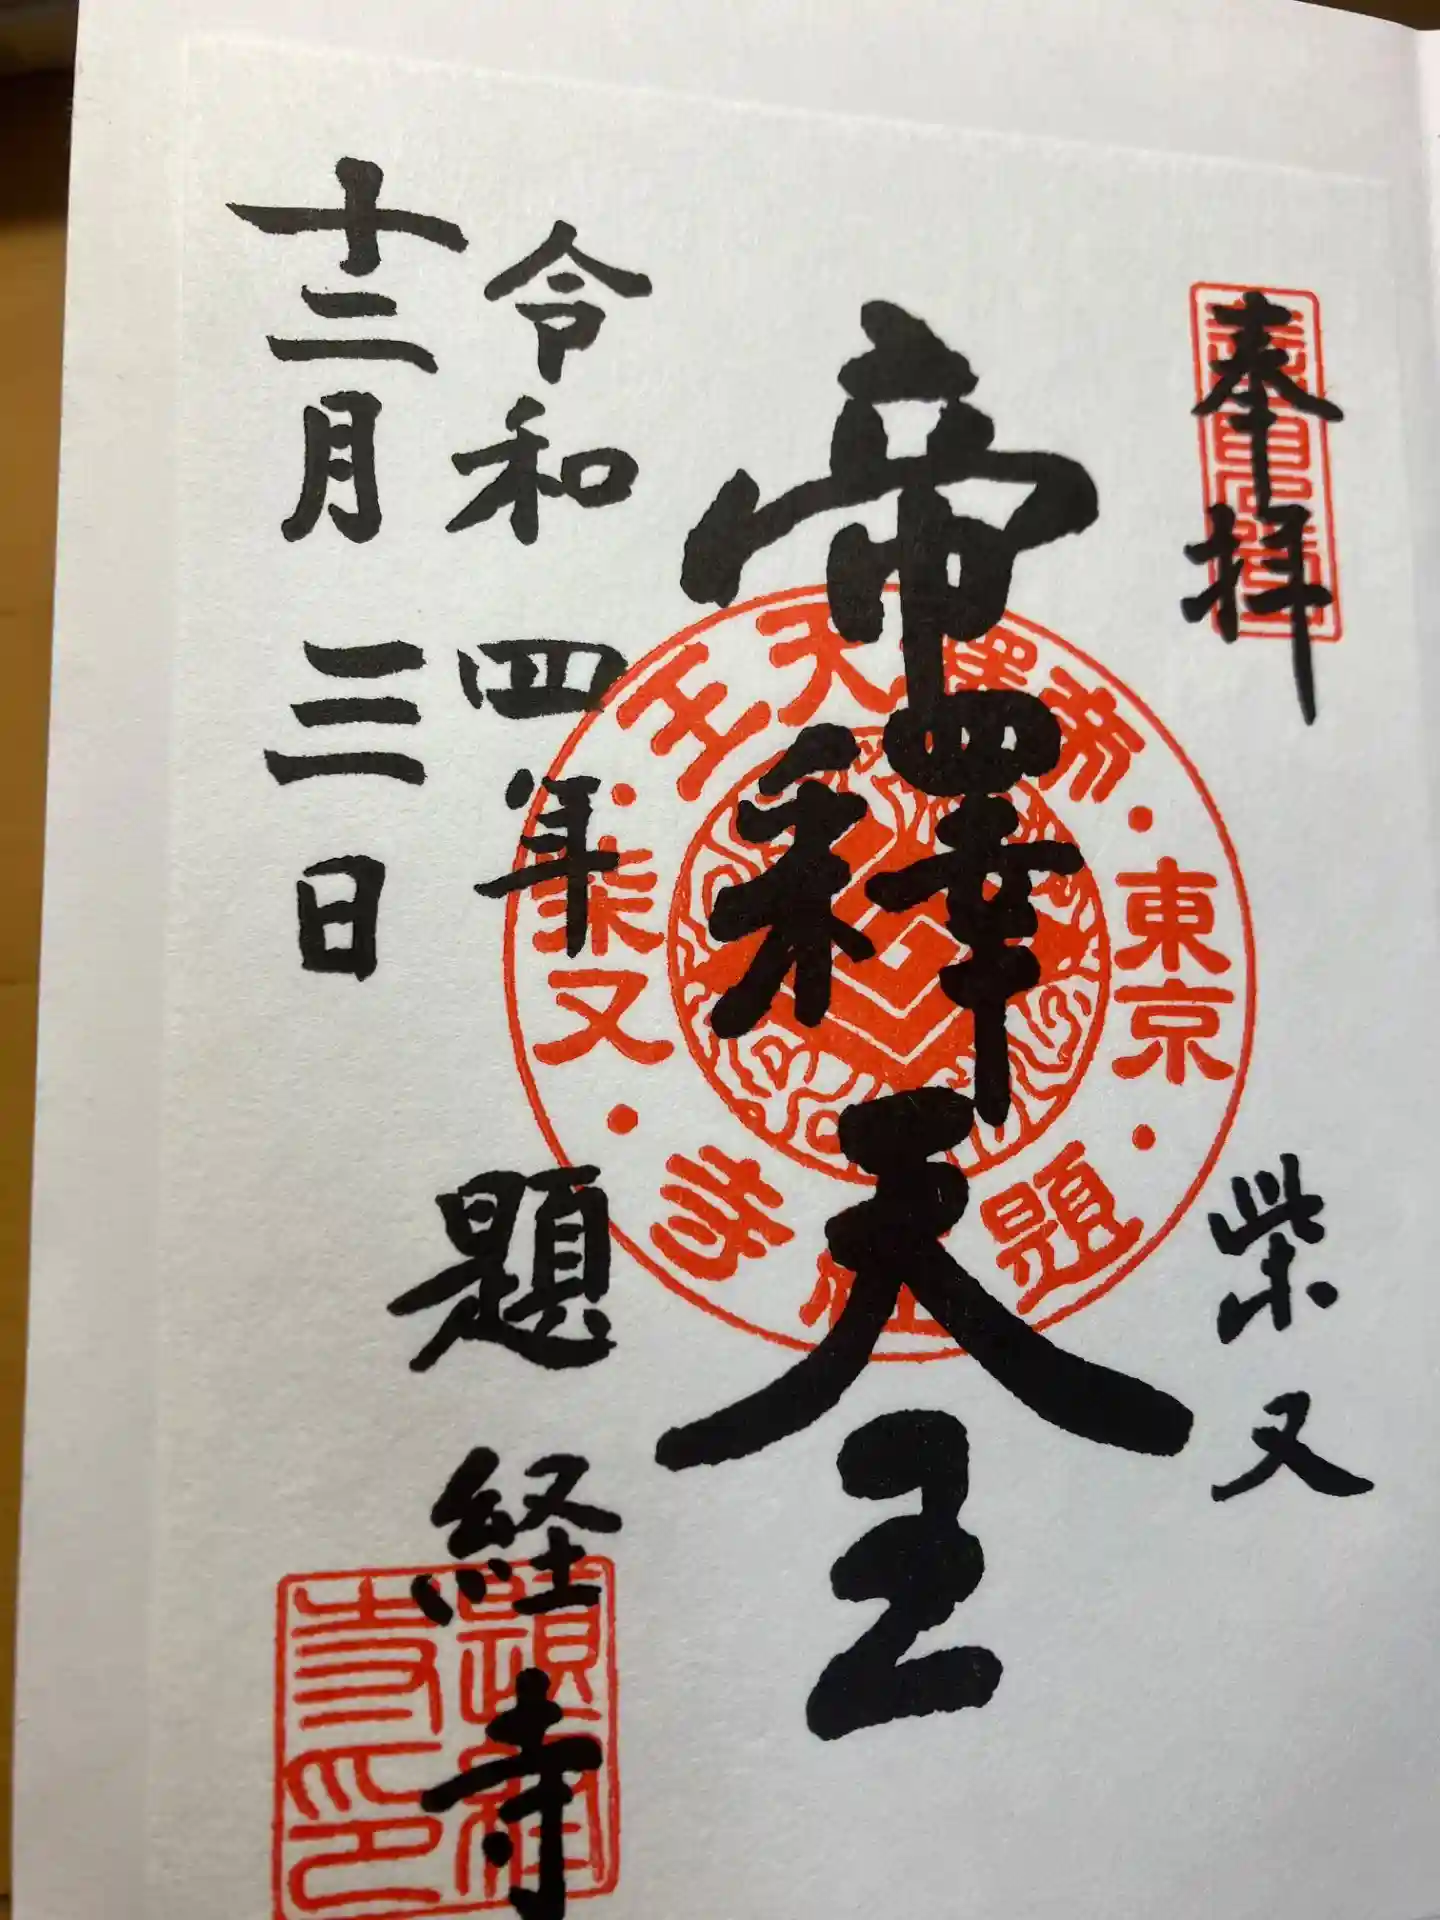 奉拝
柴又
帝釋天王
令和四年
十二月三日
題経寺
帝釋天王
東京
柴又
題経寺
題経寺印